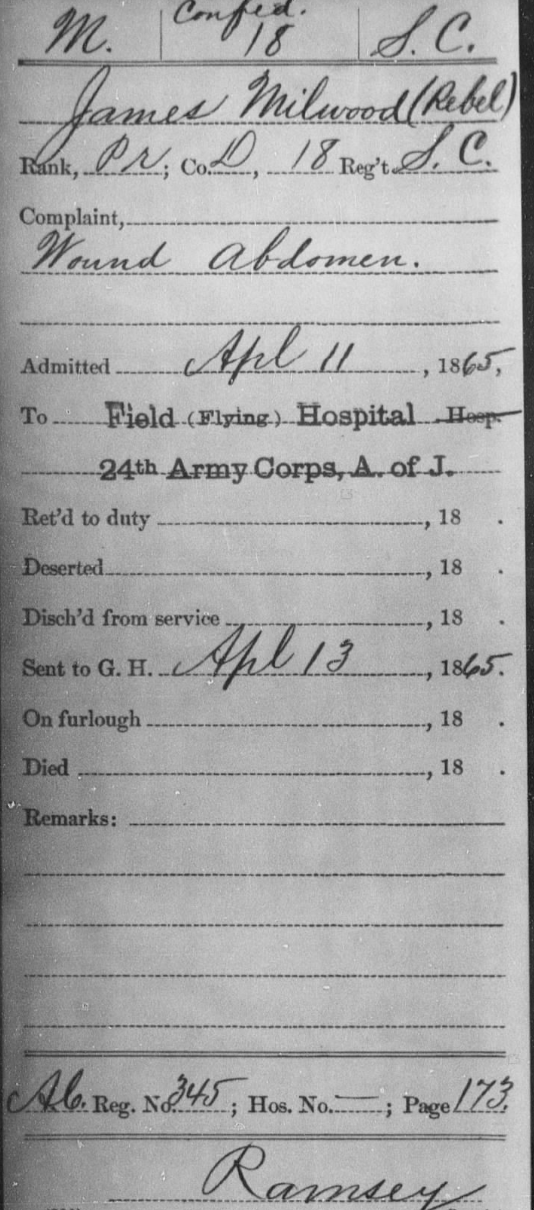 Confed.
M. 18 S. C.
James Milwood (Rebel)
Rank, Pr; Co. D, 18 Reg't S. C.
Complaint,
Wound Abdomen.
Admitted Apl 11, 1865,
To Field (Flying) Hospital Hosp.
24th Army Corps, A. of J.
Ret'd to duty , 18 .
Deserted , 18 .
Disch'd from service , 18 .
Sent to G. H. Apl 13, 1865.
On furlough , 18 .
Died , 18 .
Remarks:
Reg. No. 345; Hos. No. —; Page 173.
Ramsey